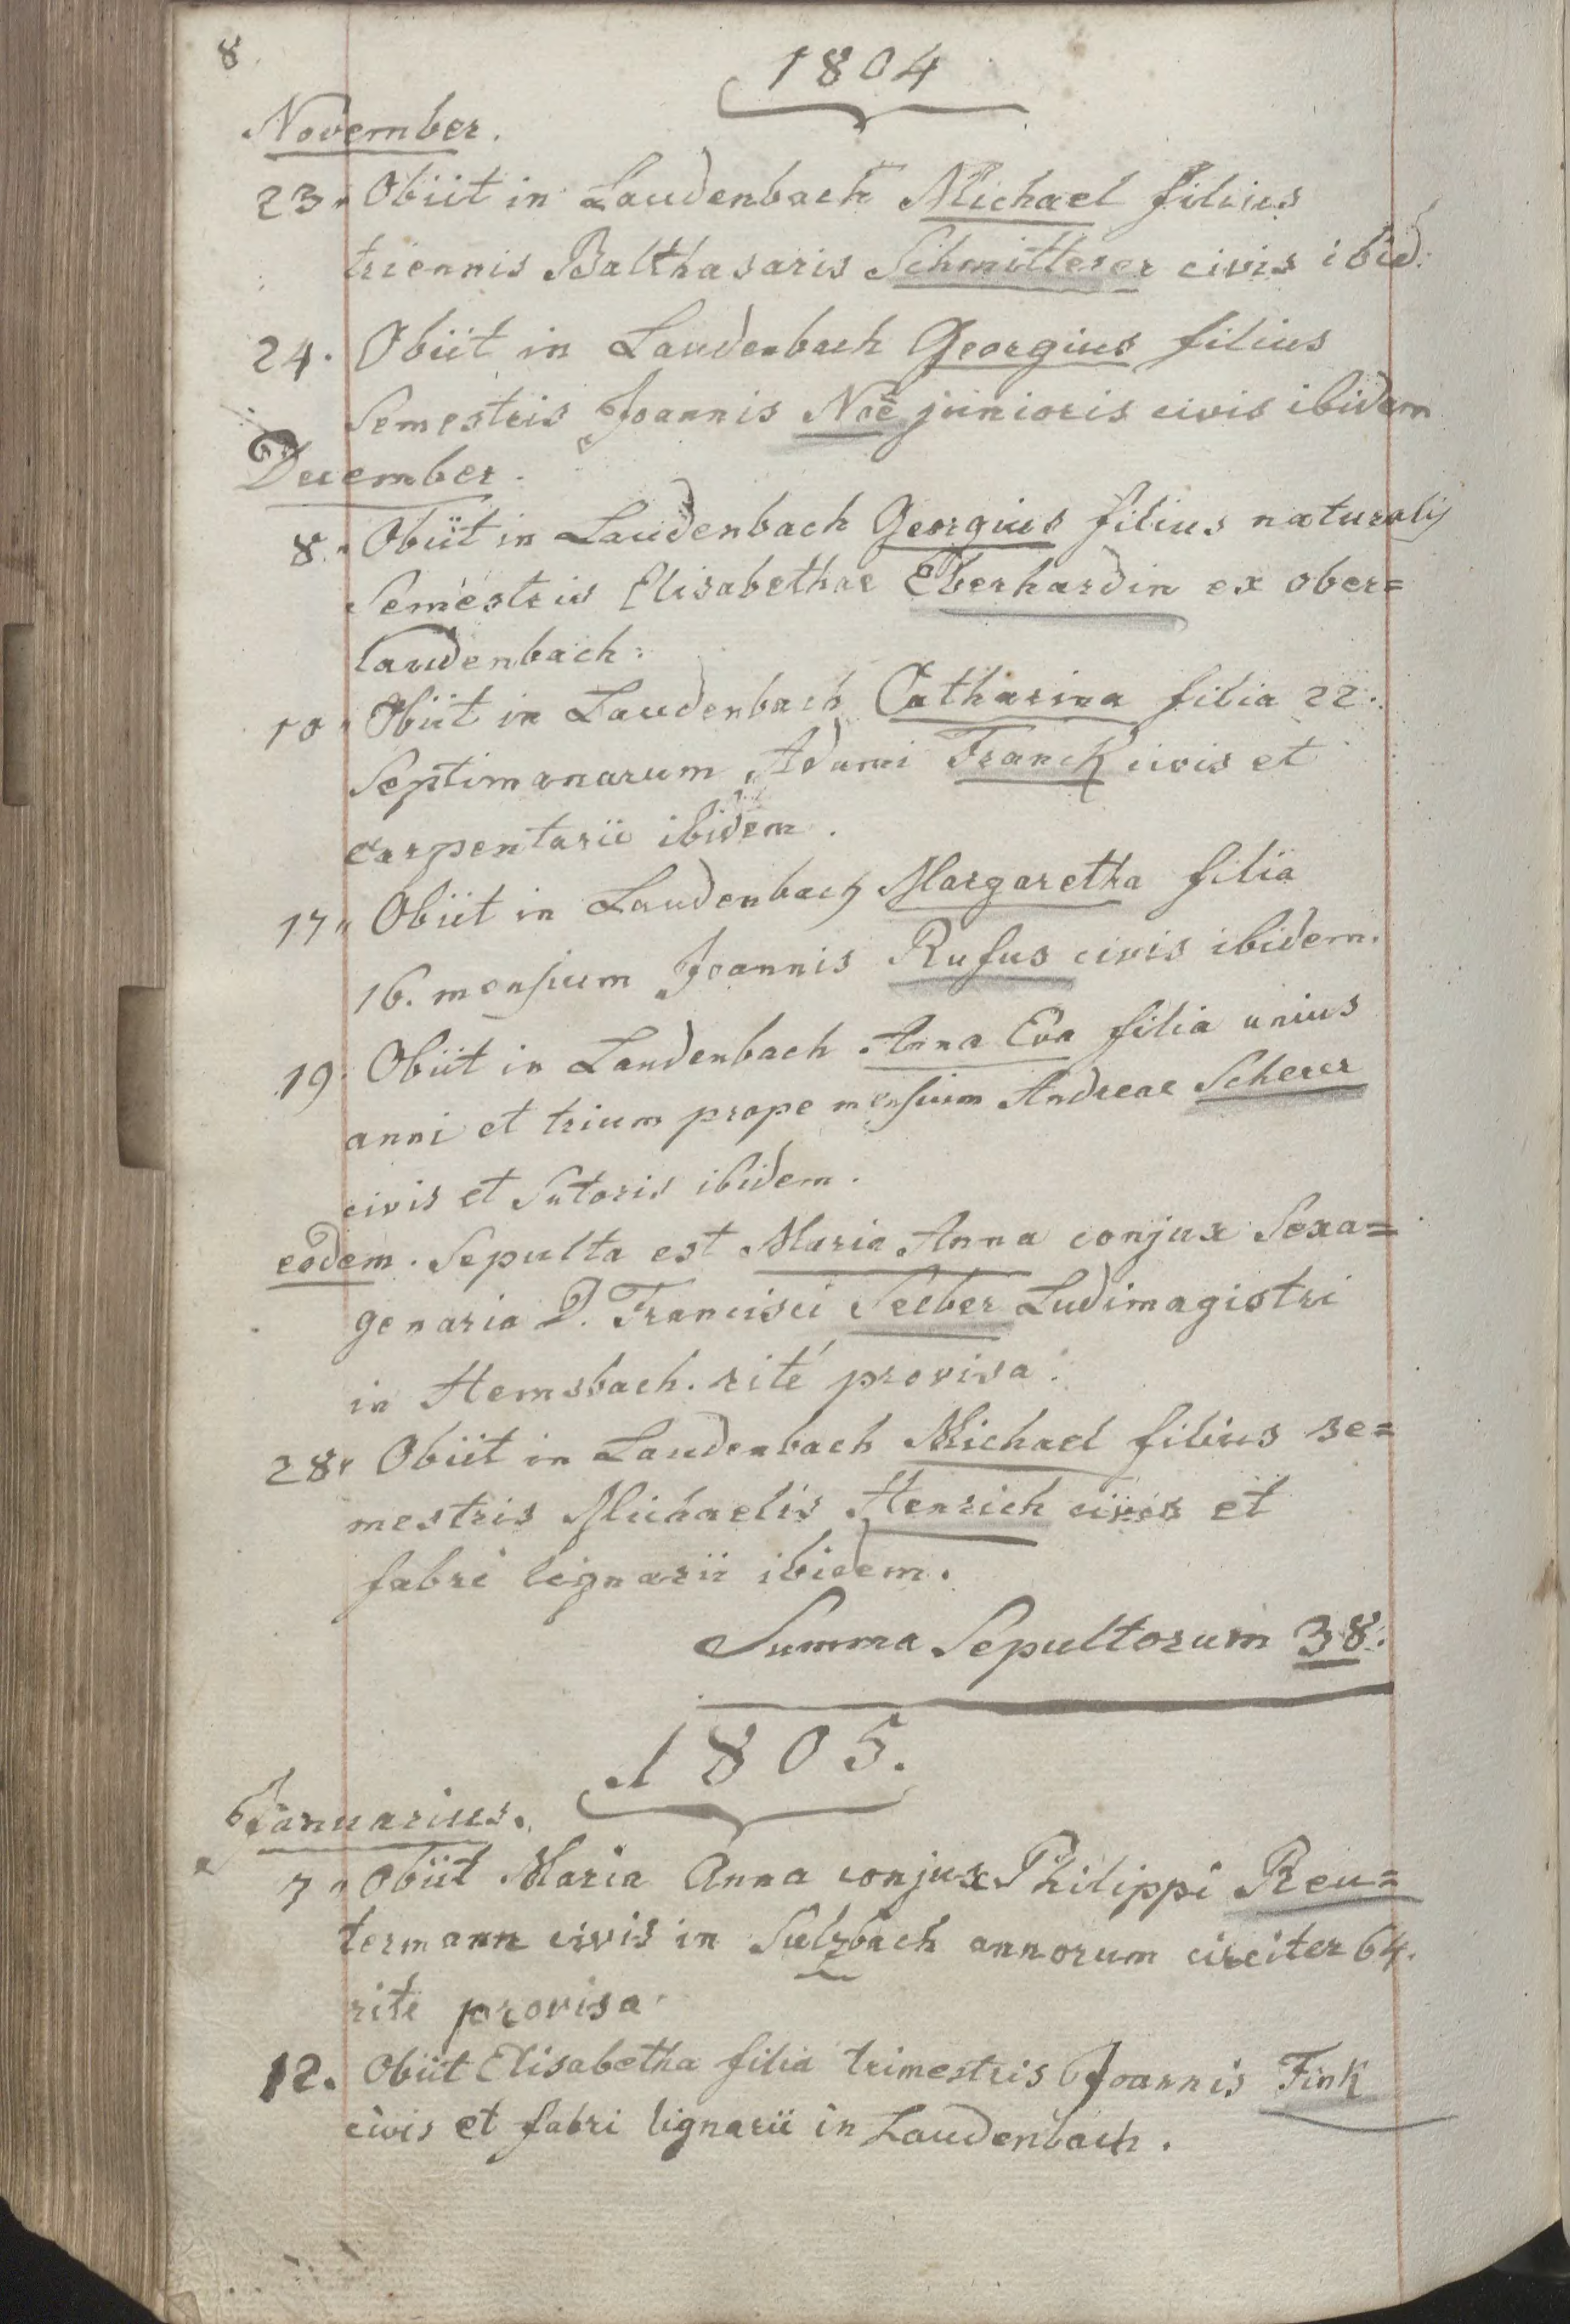 8.
1804
November.
23. Obiit in Laudenbach Michael filius
triennis Balthasaris Schmitterer civis ibid:
24. Obiit in Laudenbach Georgius filius
Semestris Joannis Noë junioris civis ibidem
December.
8. Obiit in Laudenbach Georgius filius naturalis
Semestris Elisabethae Eberhardin ex ober=
laudenbach.
10. Obiit in Laudenbach Catharina filia 22.
Septimanarum Adami Franck civis et
carpentarii ibidem.
17. Obiit in Laudenbach Margaretha filia
16. mensium Joannis Rufus civis ibidem.
19. Obiit in Laudenbach Anna Eva filia unius
anni et trium prope mensium Andreae Scherer
civis et Sutoris ibidem.
eodem. Sepulta est Maria Anna conjux Sexa=
genaria D. Francisci Seeber Ludimagistri
in Hemsbach. rité provisa.
28. Obiit in Laudenbach Michael filius se=
mestris Michaelis Henrich civis et
fabri lignarii ibidem.
Summa Sepultorum 38.
1805.
Januarius.
7. Obiit Maria Anna conjux Philippi Reu=
termann civis in Sulzbach annorum circiter 64.
rite provisa.
12. Obiit Elisabetha filia trimestris Joannis Fink
civis et fabri lignarii in Laudenbach.